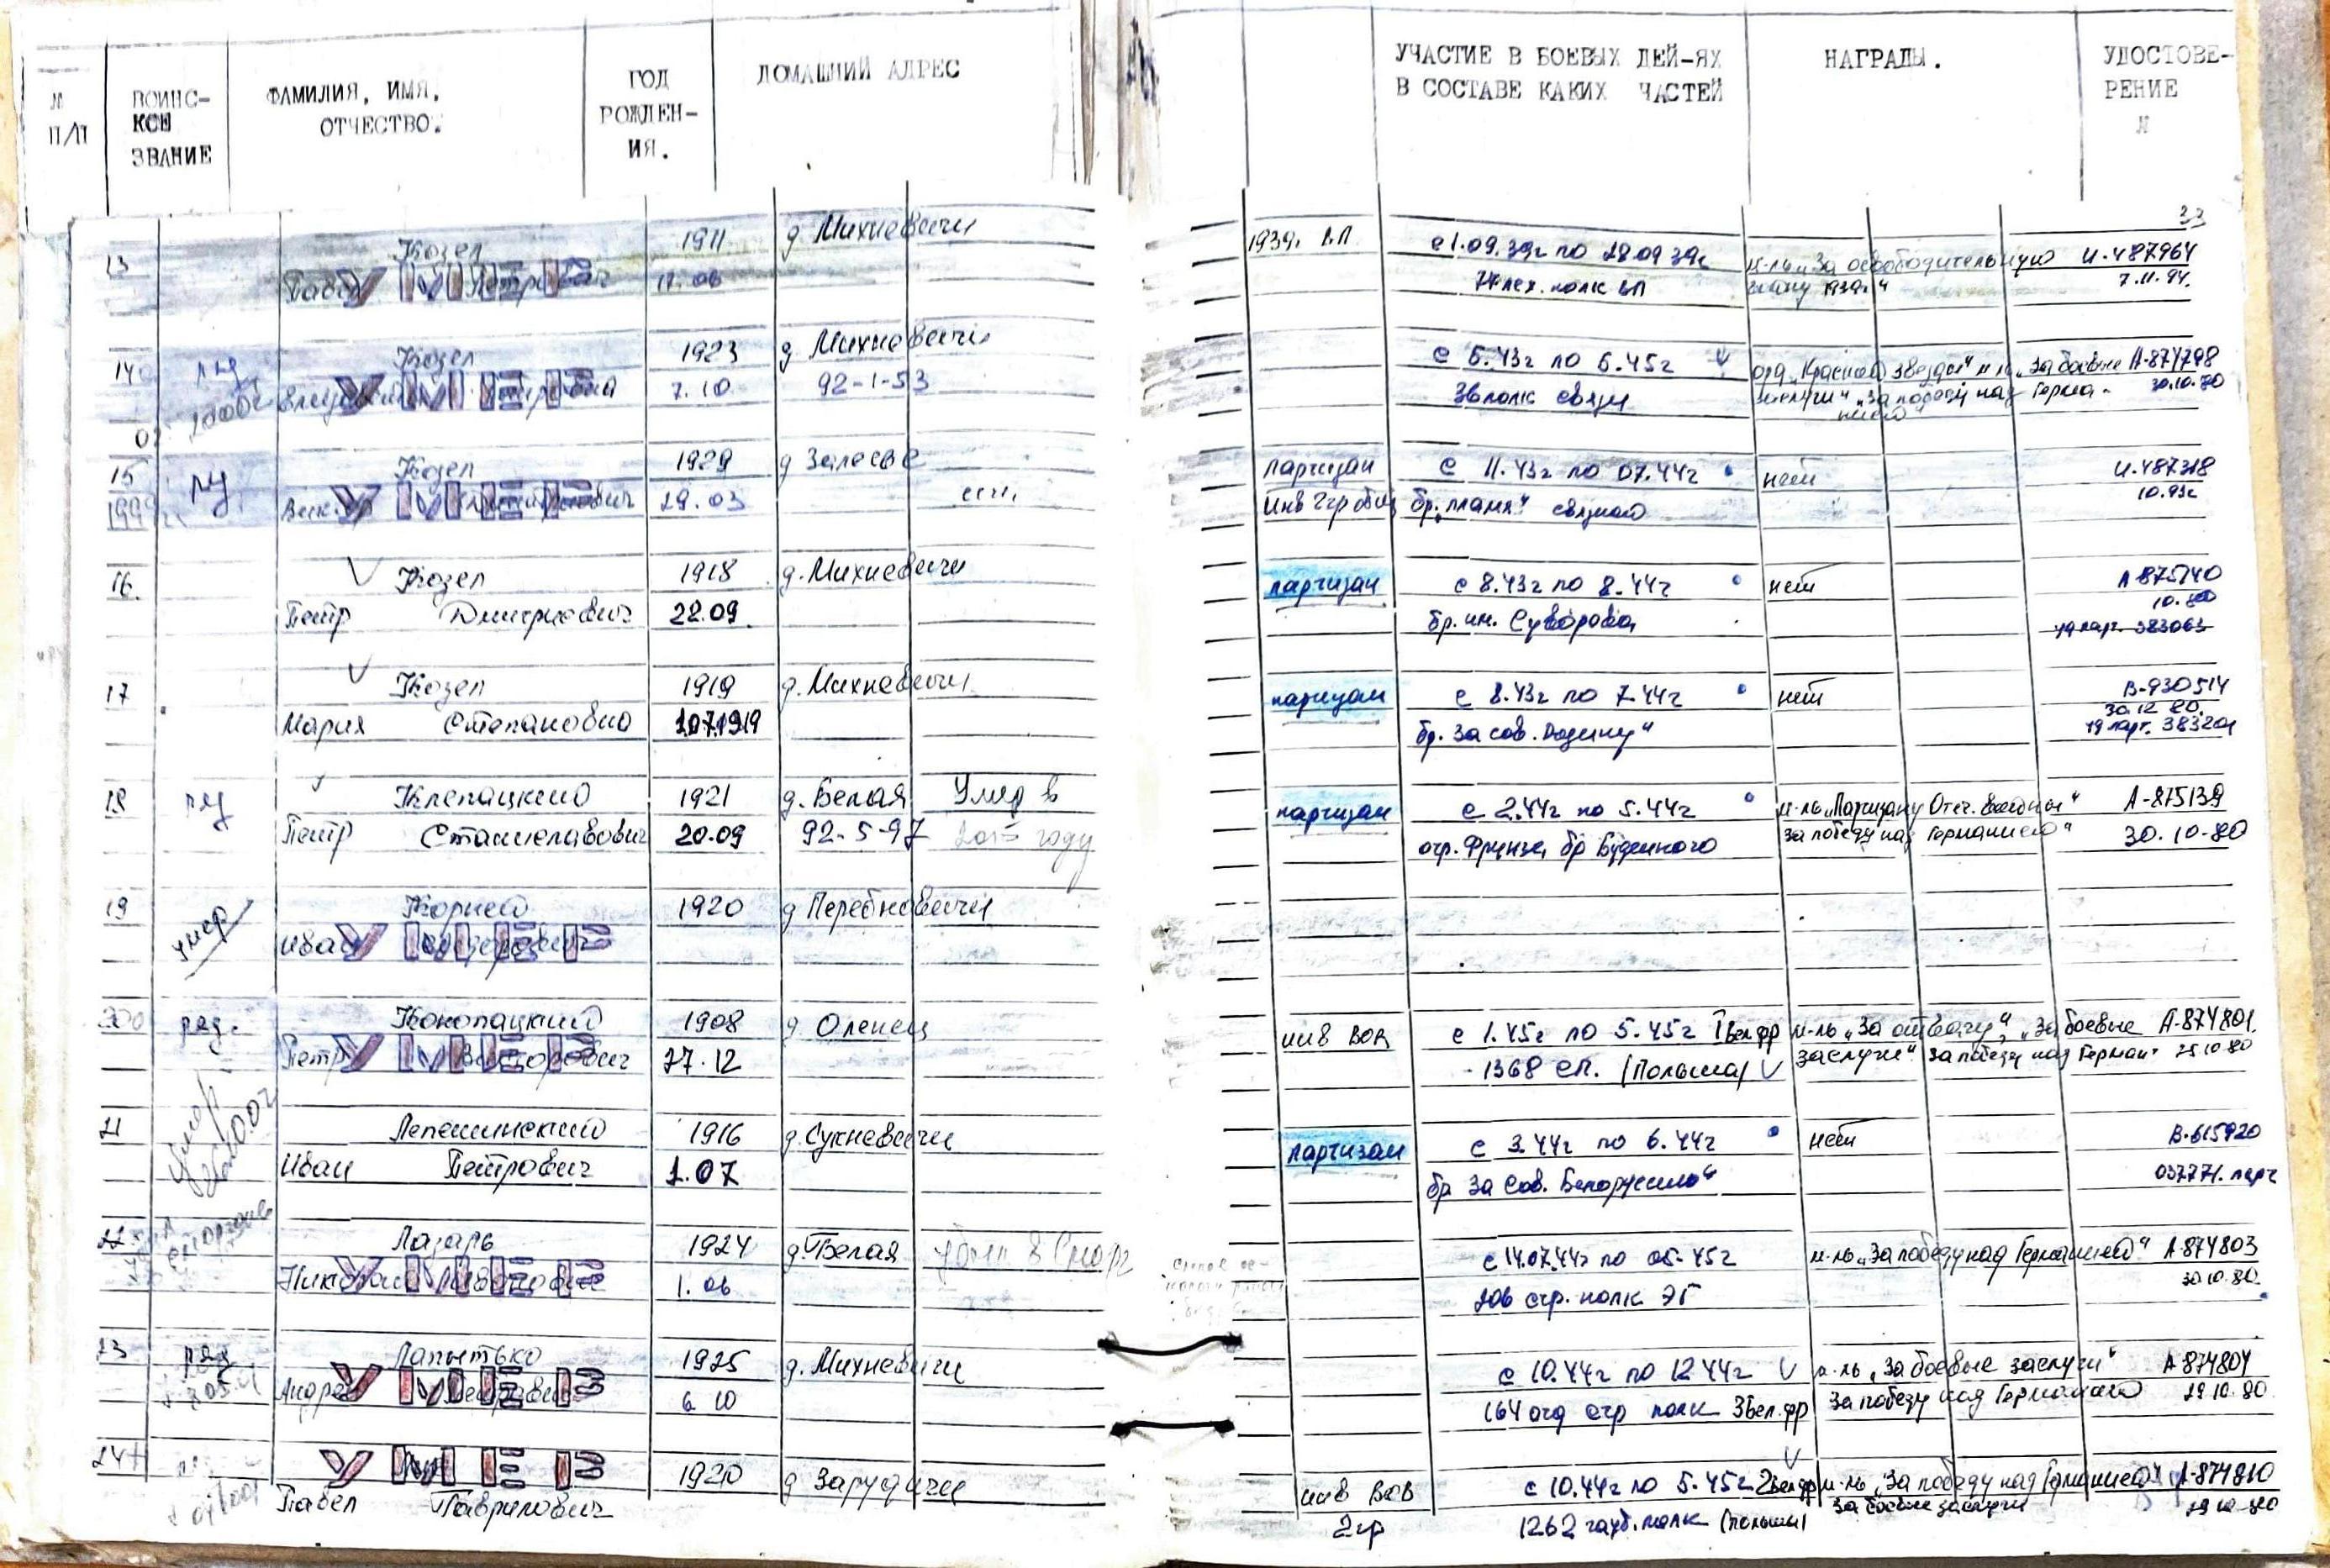 № П/П
ВОИНС-
КОЕ
ЗВАНИЕ
ФАМИЛИЯ, ИМЯ,
ОТЧЕСТВО.
ГОД
РОЖДЕН-
ИЯ.
ДОМАШНИЙ АДРЕС
УЧАСТИЕ В БОЕВЫХ ДЕЙ-ЯХ
В СОСТАВЕ КАКИХ ЧАСТЕЙ
НАГРАДЫ.
УДОСТОВЕ-
РЕНИЕ
№
13 Козел 1911 д. Михневичи 1939г ВП с 1.09.39г по 28.09.39г м-ль „За освободительную И-487964
УМЕР 12.06 полк ВП войну 1939г" 7.11.94.
14 ряд Козел 1923 д. Михневичи с 6.43г по 6.45г орд „Красной звезды" м-ль „За боевые А-874798
УМЕР 7.10 92-1-53 полк связи заслуги" „За победу над Герма- 30.10.80
нией"
15 Козел 1929 д Залесье партизан с 11.43г по 07.44г нет И-487318
1999г УМЕР 29.03 инв 2гр общ бр. „Пламя" связной 10.93г
16. Козел 1918 д. Михневичи партизан с 8.43г по 8.44г нет А 875140
Петр Дмитриевич 22.09. бр. им. Суворова 10.80
уд парт. 383063
17 Козел 1919 д. Михневичи партизан с 8.43г по 7.44г нет В-930514
Мария Степановна 10.7.1919 бр. За сов. Родину" 30.12.80.
уд парт. 383201
18 ряд Клепацкий 1921 д. Белая Умер в партизан с 2.44г по 5.44г м-ль „Партизану Отеч. войны" А-875139
Петр Станиславович 20.09 92-5-97 году отр. Фрунзе, бр Буденного за победу над Германией" 30.10-80
19 умер Корней 1920 д Перебновичи
Иван УМЕР
20 ряд. Конопацкий 1908 д. Оленец инв ВОВ с 1.45г по 5.45г 1 Бел фр м-ль „За отвагу", „За боевые А-874801.
Петр УМЕР Викторович 27.12 1368 сп. (Польша) заслуги" За победу над Герман" 25.10.80
21 Лепешинский 1916 д. Сукневичи партизан с 3.44г по 6.44г нет В-615920
Иван Петрович 1.07 бр За Сов. Белоруссию" 037771. парт
22 Лазарь 1924 д. Белая убыл в Сморг с 14.07.44г по 05.45г м-ль „За победу над Германией" А-874803
Николай УМЕР 1.06 206 стр. полк 30.10.80
23 ряд Лапытько 1925 д. Михневичи с 10.44г по 12.44г м-ль „За боевые заслуги" А-874804
Андрей УМЕР 6.10 164 отд стр полк 3 Бел. фр За победу над Германией 29.10.80
24 УМЕР 1920 д Зарудичи инв ВОВ с 10.44г по 5.45г 2 Бел фр м-ль „За победу над Германией" А-874810
Павел Гаврилович 2гр 1262 гауб. полк (Польша) За боевые заслуги 29.10.80